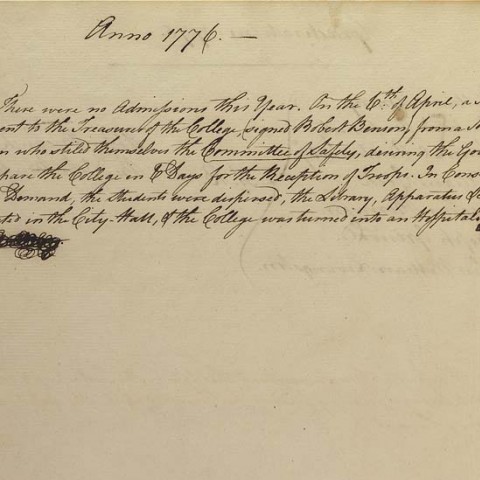 Anno 1776. —
There were no Admissions this Year. On the 6th of April, a
to the Treasurer of the College, signed Robert Benson, from a
who stiled themselves the Committee of Safety, desiring the
the College in 6 Days for the Reception of Troops. In
Demand, the Students were dispersed, the Library, Apparatus &
in the City-Hall, & the College was turned into an Hospital